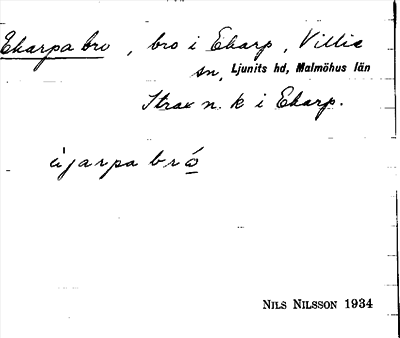 Ekarpa bro , bro i Ekarp , Villie
sn, Ljunits hd, Malmöhus län
Strax n. k i Ekarp.
ájarpa bró
NILS NILSSON 1934